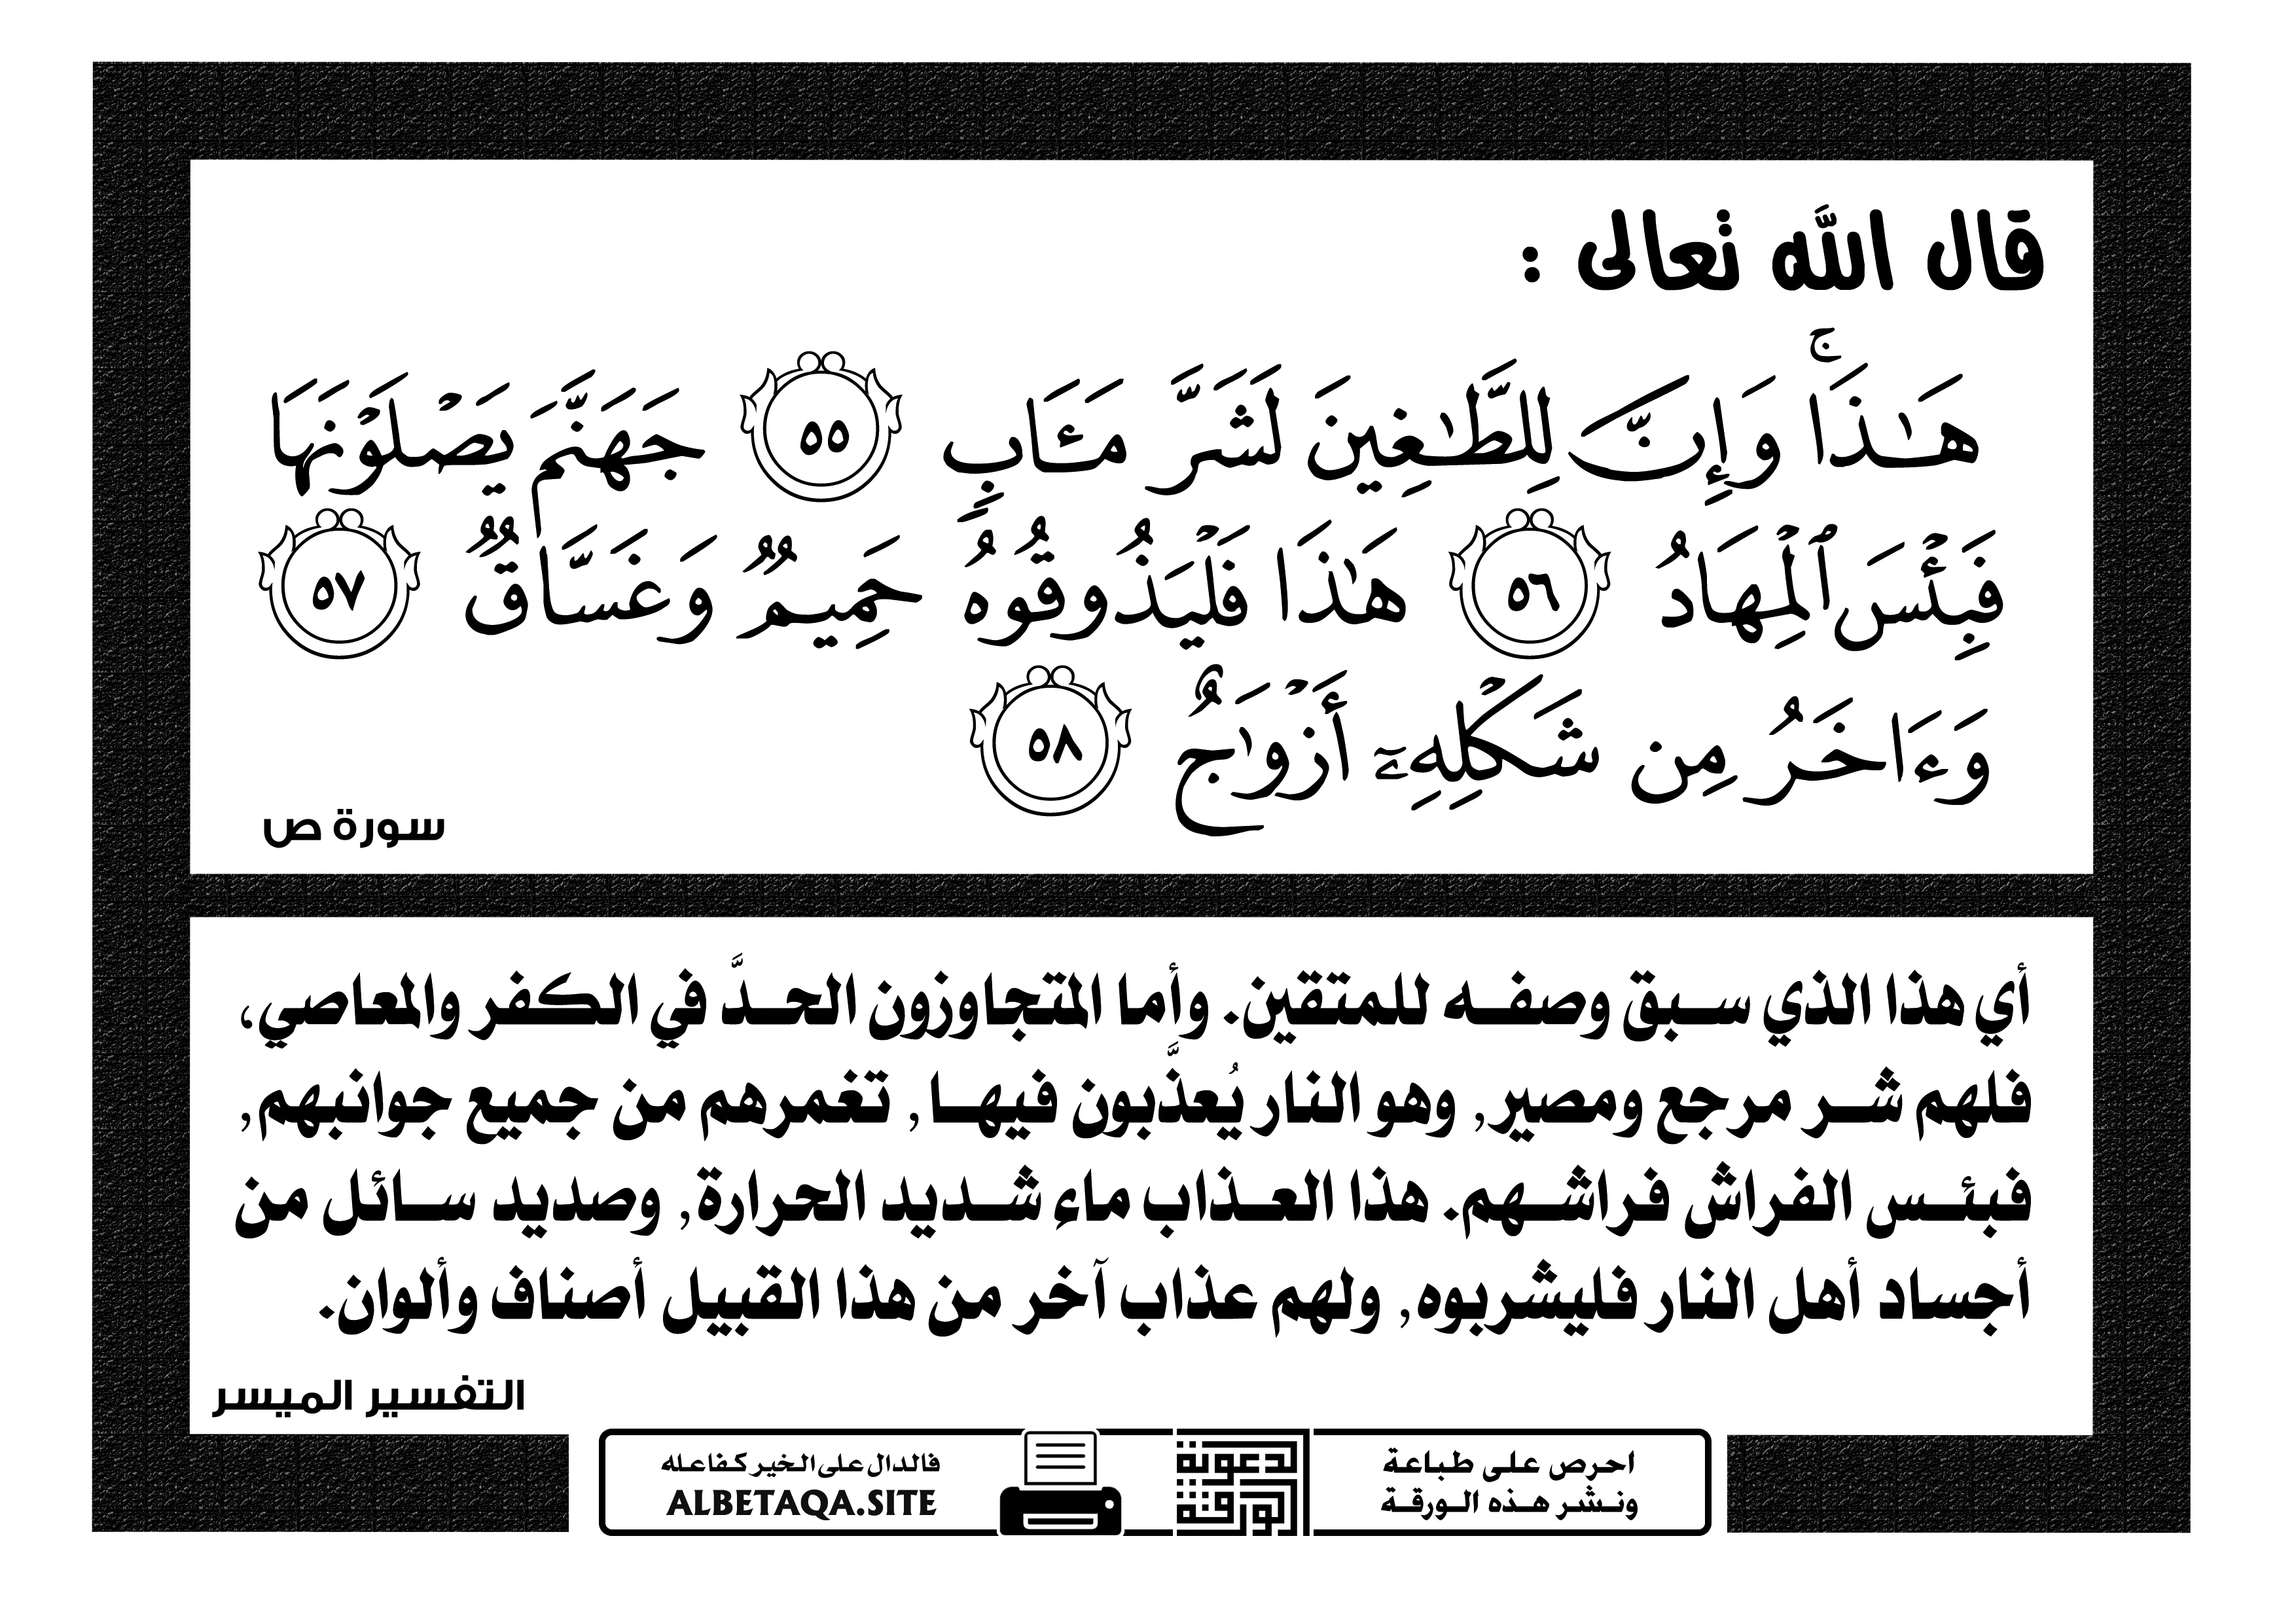 قال الله تعالى :
هَـٰذَاۚ وَإِنَّ لِلطَّـٰغِينَ لَشَرَّ مَـَٔابٍ ٥٥ جَهَنَّمَ يَصْلَوْنَهَا
فَبِئْسَ ٱلْمِهَادُ ٥٦ هَـٰذَا فَلْيَذُوقُوهُ حَمِيمٌ وَغَسَّاقٌ ٥٧
وَءَاخَرُ مِن شَكْلِهِۦٓ أَزْوَٰجٌ ٥٨
سورة ص
أي هذا الذي سبق وصفه للمتقين. وأما المتجاوزون الحدَّ في الكفر والمعاصي،
فلهم شر مرجع ومصير, وهو النار يُعذَّبون فيها, تغمرهم من جميع جوانبهم,
فبئس الفراش فراشهم. هذا العذاب ماء شديد الحرارة, وصديد سائل من
أجساد أهل النار فليشربوه, ولهم عذاب آخر من هذا القبيل أصناف وألوان.
التفسير الميسر
احرص على طباعة
ونشر هذه الورقة
الدعوية
الورقة
فالدال على الخير كفاعله
ALBETAQA.SITE